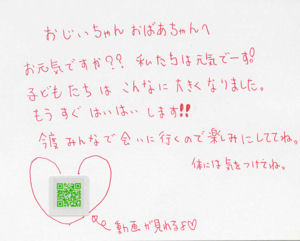 おじいちゃん おばあちゃんへ
お元気ですか?? 私たちは元気でーす!
子どもたちは こんなに大きくなりました。
もうすぐ はいはい します!!
今度 みんなで 会いに行くので楽しみにしててね。
体には気をつけてね。
動画が見れるよ♡